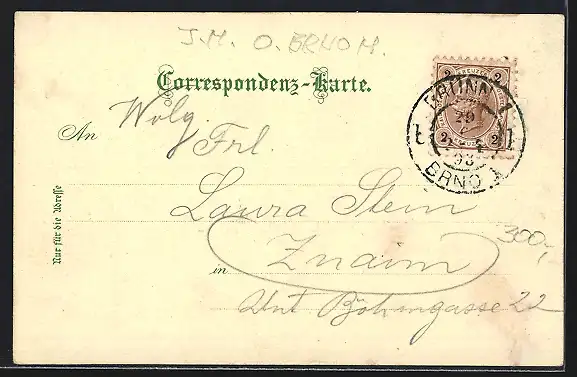 J. M. O. BRNO M.
Correspondenz-Karte.
2 KREUZER 2
BRÜNN 1
29
98
BRNO 1
Wolg.
An Frl.
Laura Stein
300,-
in Znaim
Unt Böhmgasse 22
Nur für die Adresse